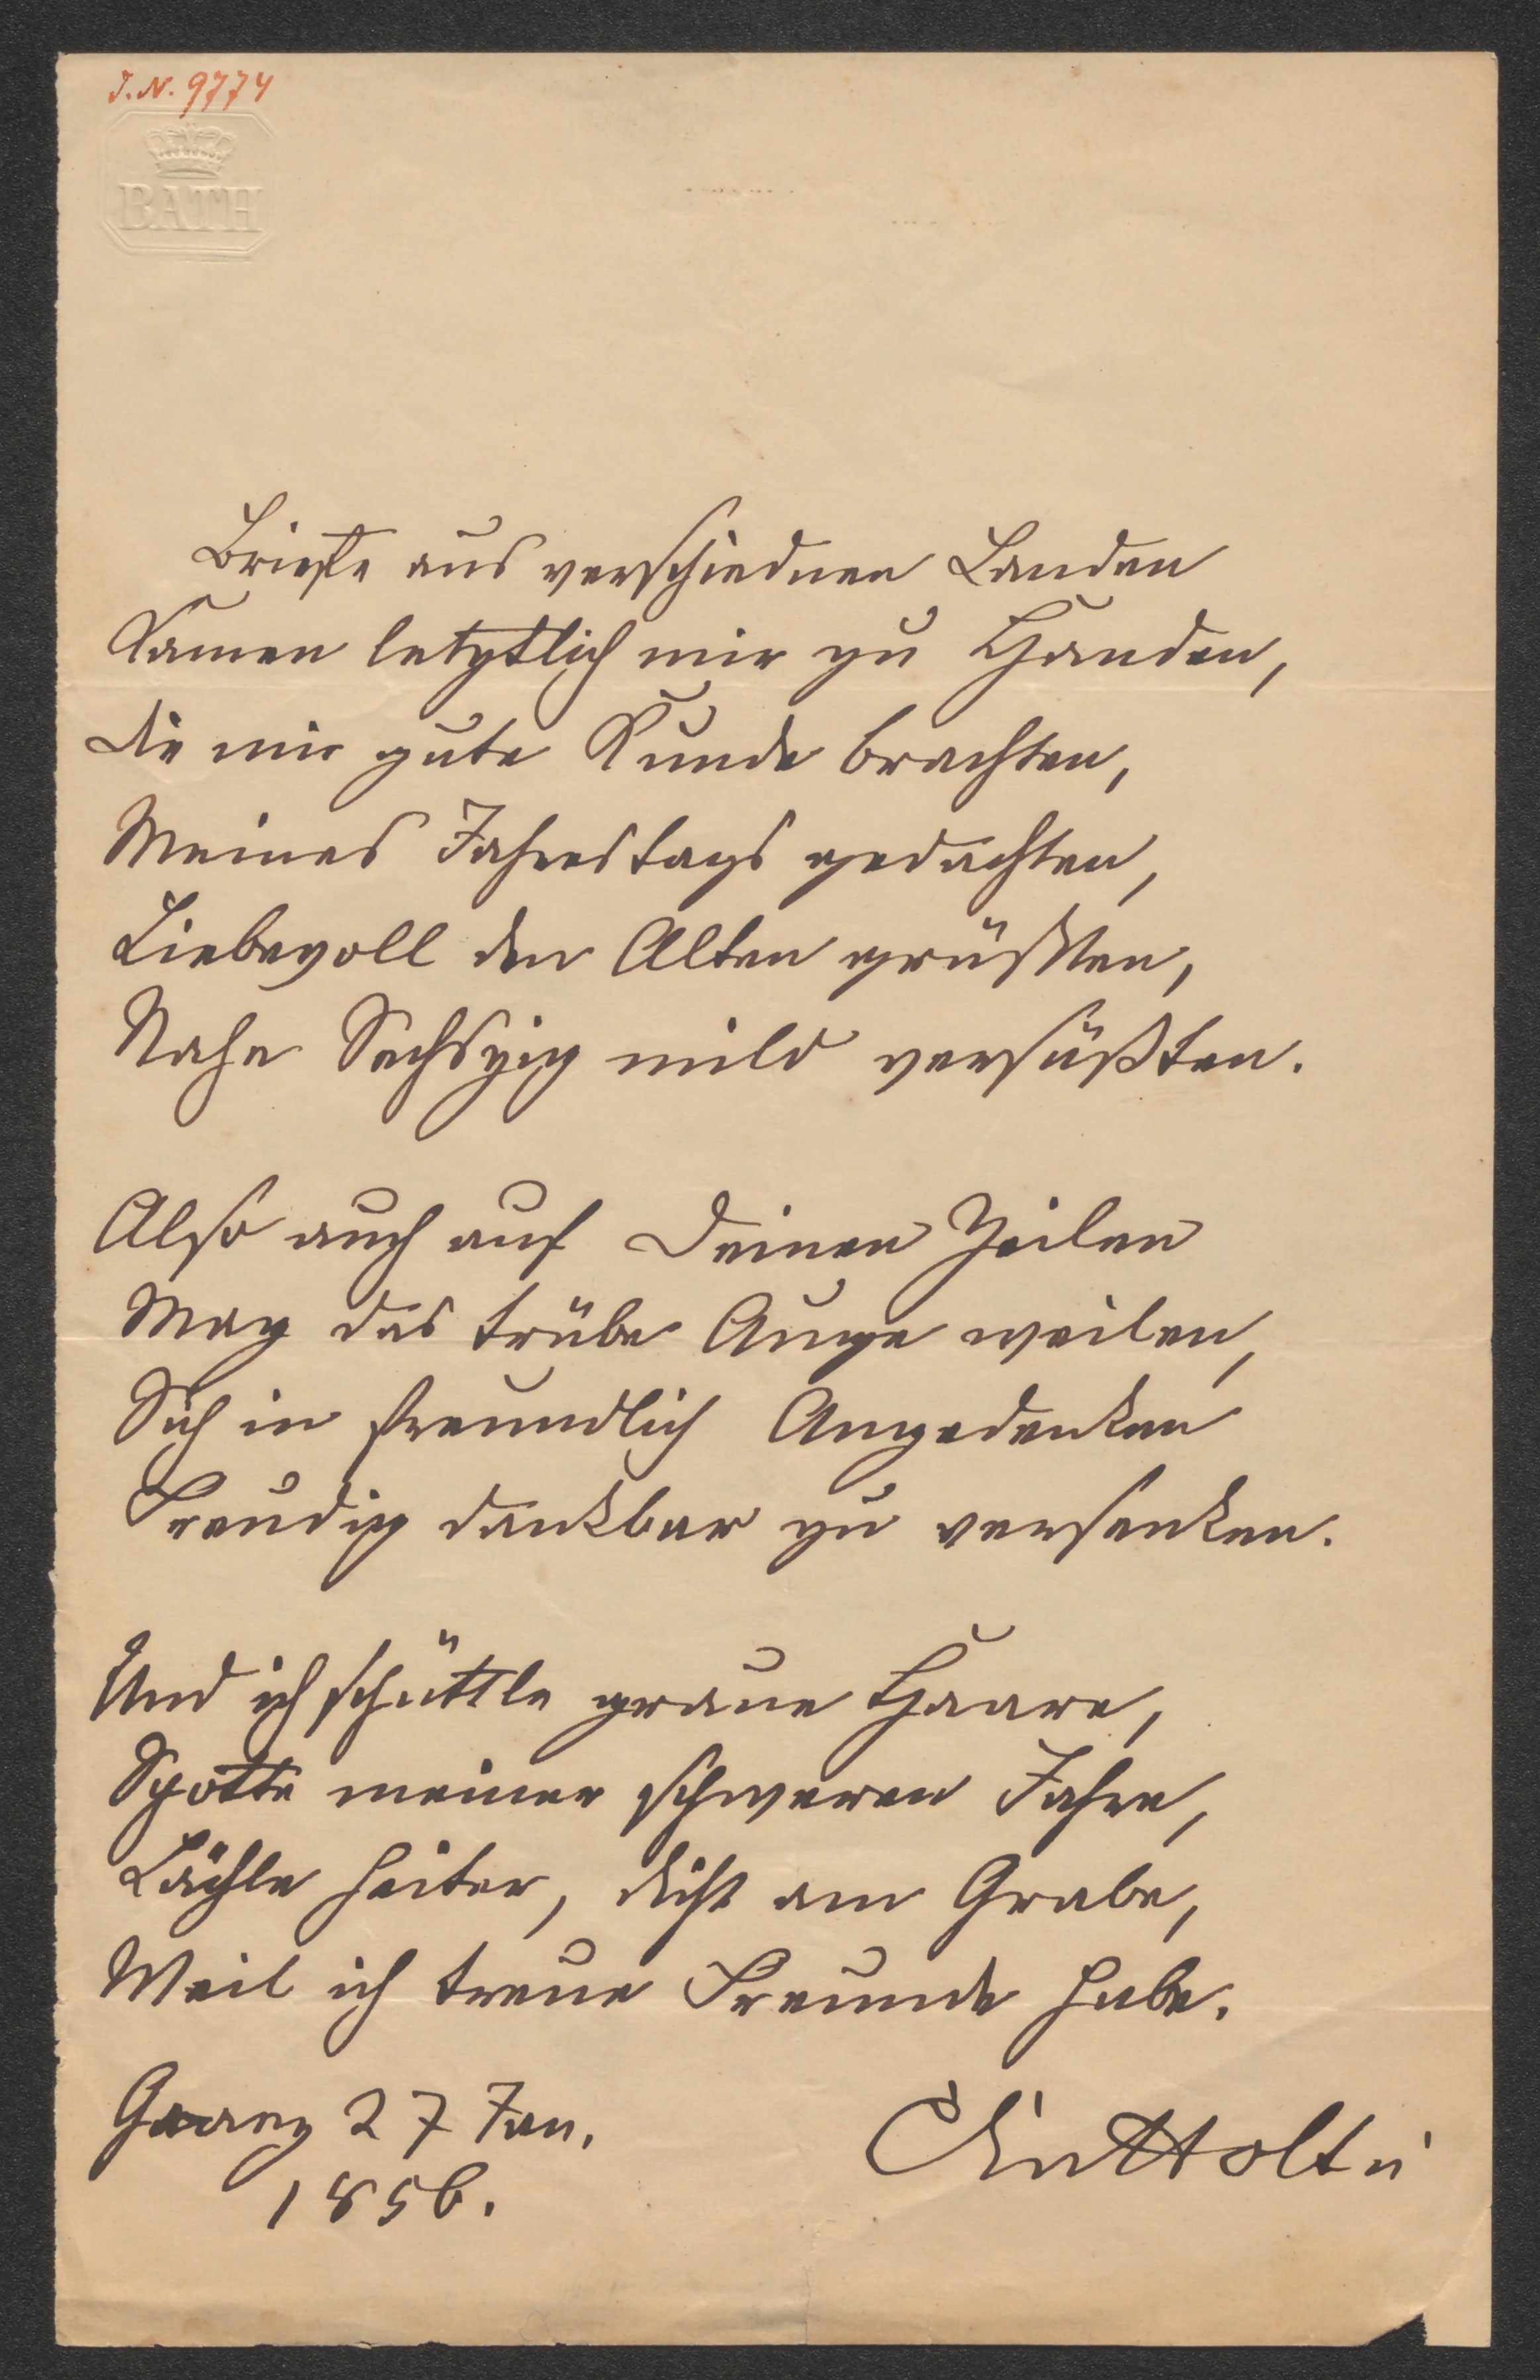 J.N. 9774
BATH
Briefe aus verschiednen Landen
Kamen letztlich mir zu Handen,
Die mir gute Kunde brachten,
Meines Jahrestags gedachten,
Liebevoll den Alten grüßten,
Nahe Sechszig mild versüßten.
Also auch auf Deinen Zeilen
Mag das trübe Auge weilen,
Sich in freundlich Angedenken
Freudig dankbar zu versenken.
Und ich schüttle graue Haare,
Spotte meiner schweren Jahre,
Lächle heiter, dicht am Grabe,
Weil ich treue Freunde habe.
27 Jan.
1856.
Holtei